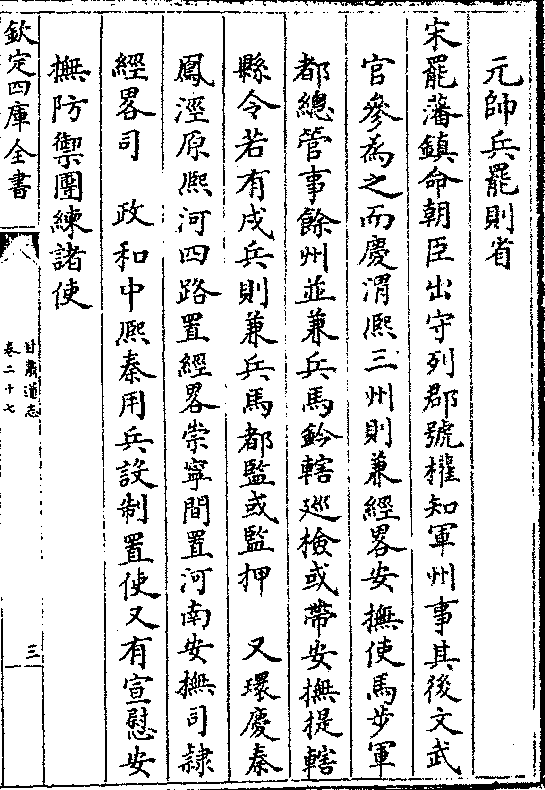 元帥兵罷則省
宋罷藩鎮命朝臣出守列郡號權知軍州事其後文武
官參為之而慶渭熙三州則兼經畧安撫使馬步軍
都總管事餘州並兼兵馬鈐轄廵檢或帶安撫提轄
縣令若有戍兵則兼兵馬都監或監押　又環慶秦
鳳涇原熙河四路置經畧崇寧間置河南安撫司隷
經畧司　政和中熙秦用兵設制置使又有宣慰安
撫防禦團練諸使
欽定四庫全書
甘肅通志
卷二十七
三